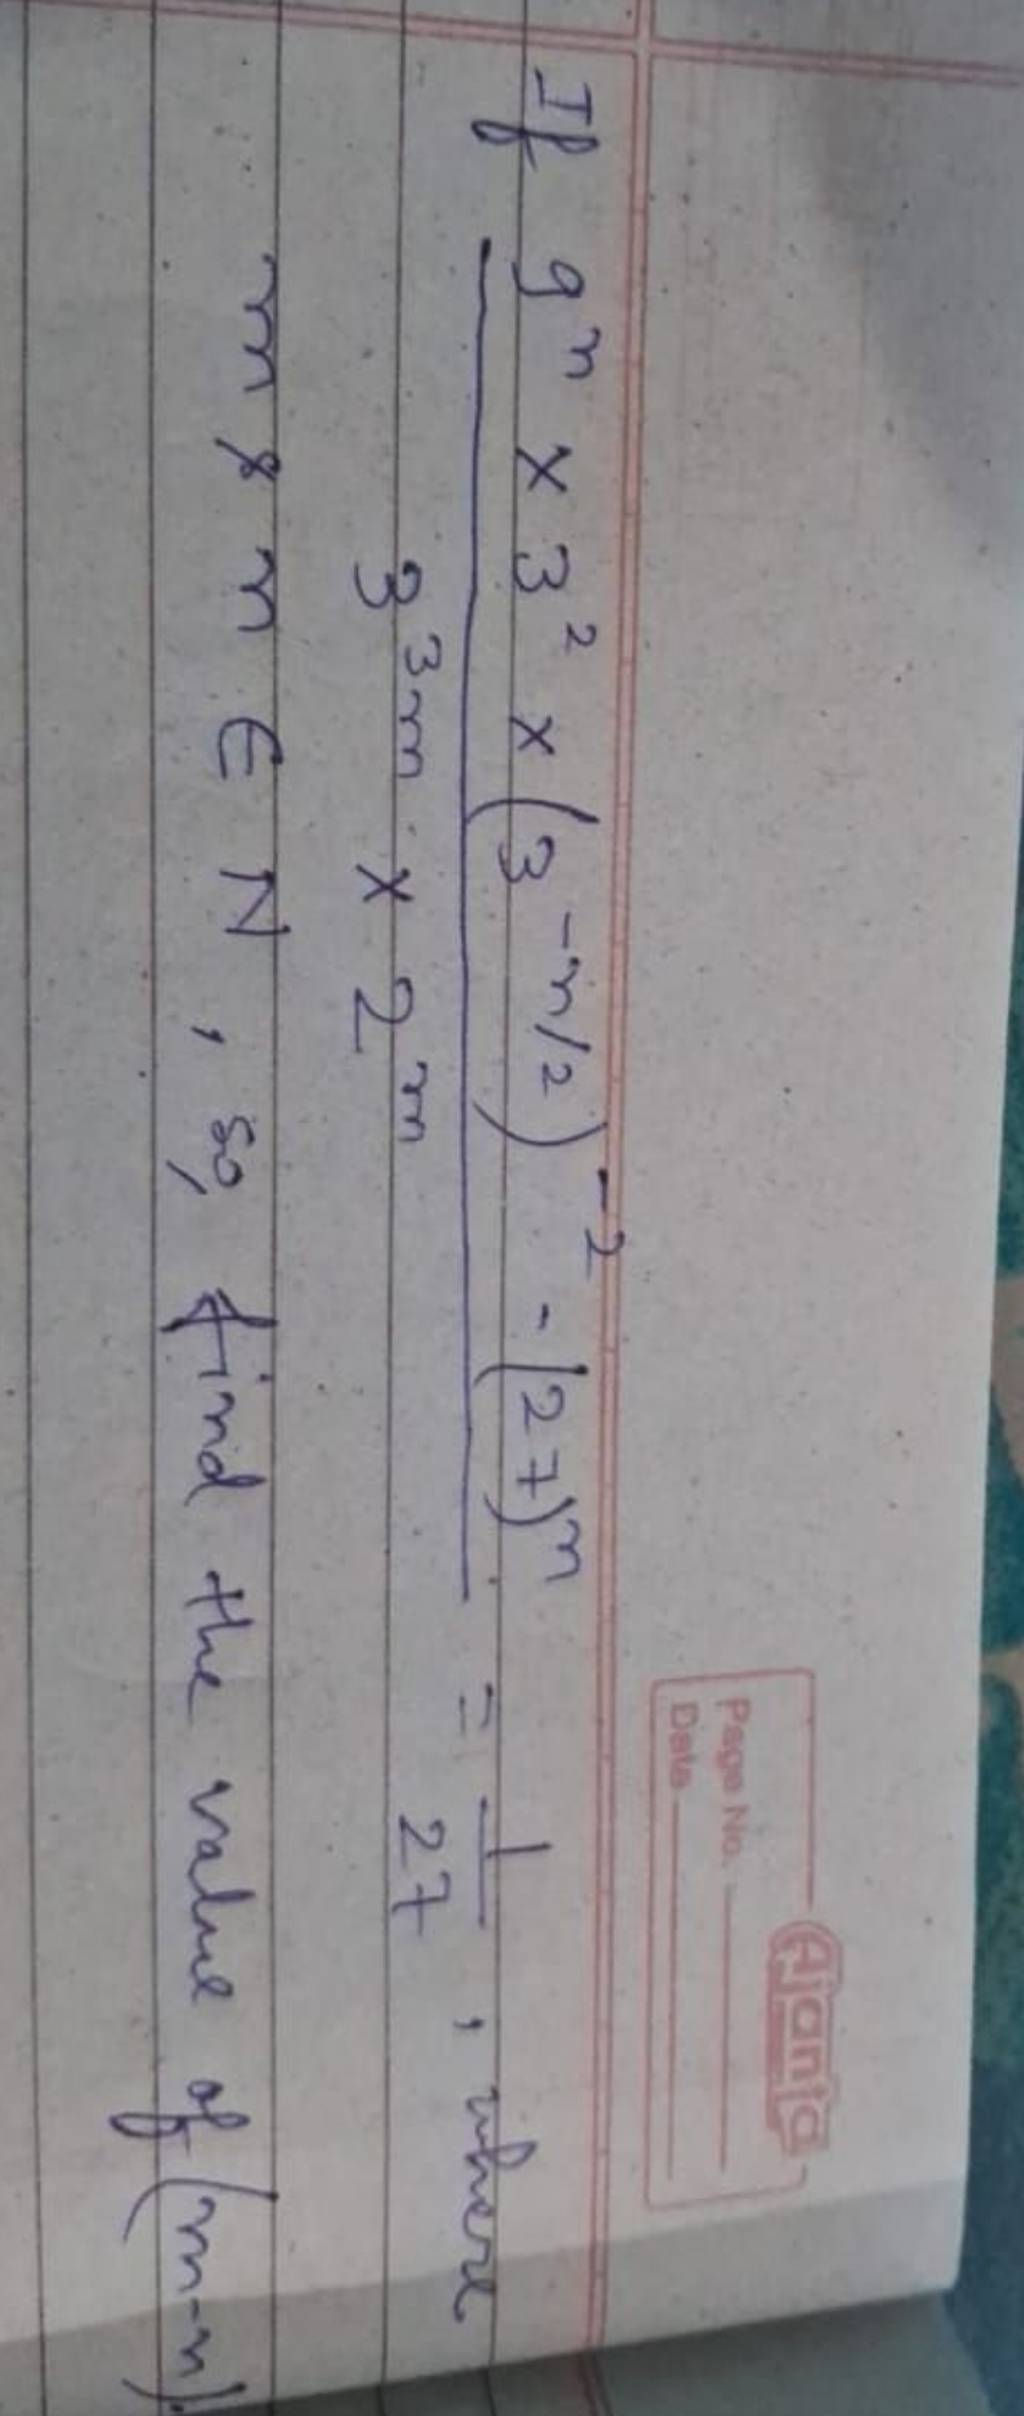 Ajanta
Page No.
Date
If 9^n × 3^2 × (3^{-n/2})^{-2} - (27)^n
3^{3m} × 2^m
= 1/27 , where
m & n ∈ N , so, find the value of (m-n).